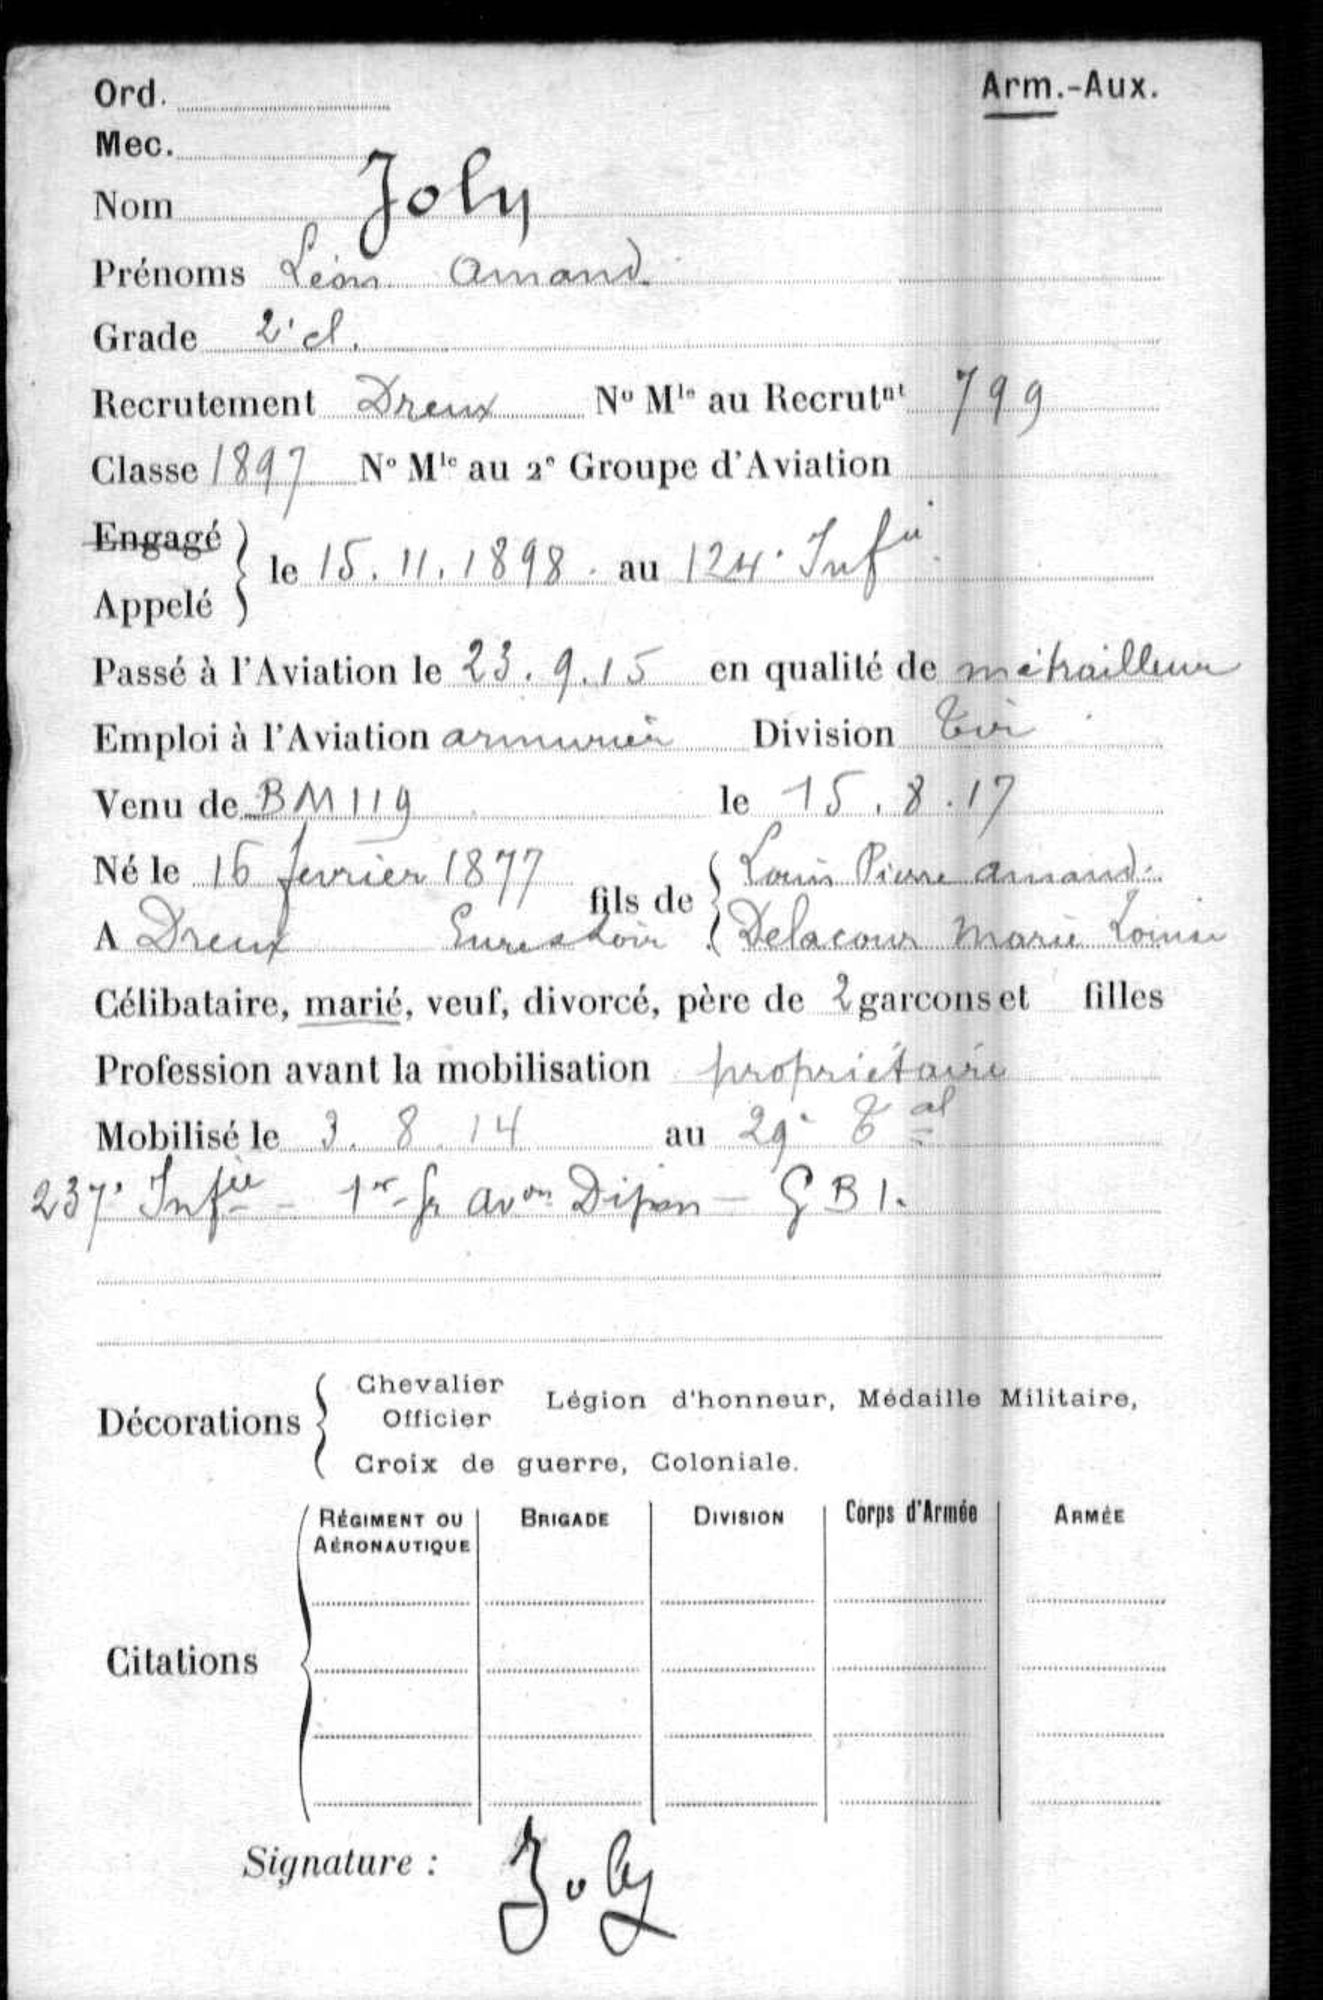 Ord.
Arm.-Aux.
Mec.
Nom Joly
Prénoms Léon Amand
Grade 2e cl.
Recrutement Dreux No Mle au Recrutnt 799
Classe 1897 No Mle au 2e Groupe d'Aviation
Engagé
le 15.11.1898. au 124e Infie
Appelé
Passé à l'Aviation le 23.9.15 en qualité de mitrailleur
Emploi à l'Aviation armurier Division Tir
Venu de BM119 le 15.8.17
Né le 16 fevrier 1877 fils de Louis Pierre Amand
A Dreux Eure & Loir Delacour Marie Louise
Célibataire, marié, veuf, divorcé, père de 2 garcons et filles
Profession avant la mobilisation propriétaire
Mobilisé le 3.8.14 au 29e Tal
237e Infie - 1er Gr Avon Dijon - GB1.
Décorations Chevalier Officier Légion d'honneur, Médaille Militaire,
Croix de guerre, Coloniale.
Citations
RÉGIMENT OU AÉRONAUTIQUE BRIGADE DIVISION Corps d'Armée ARMÉE
Signature : Joly